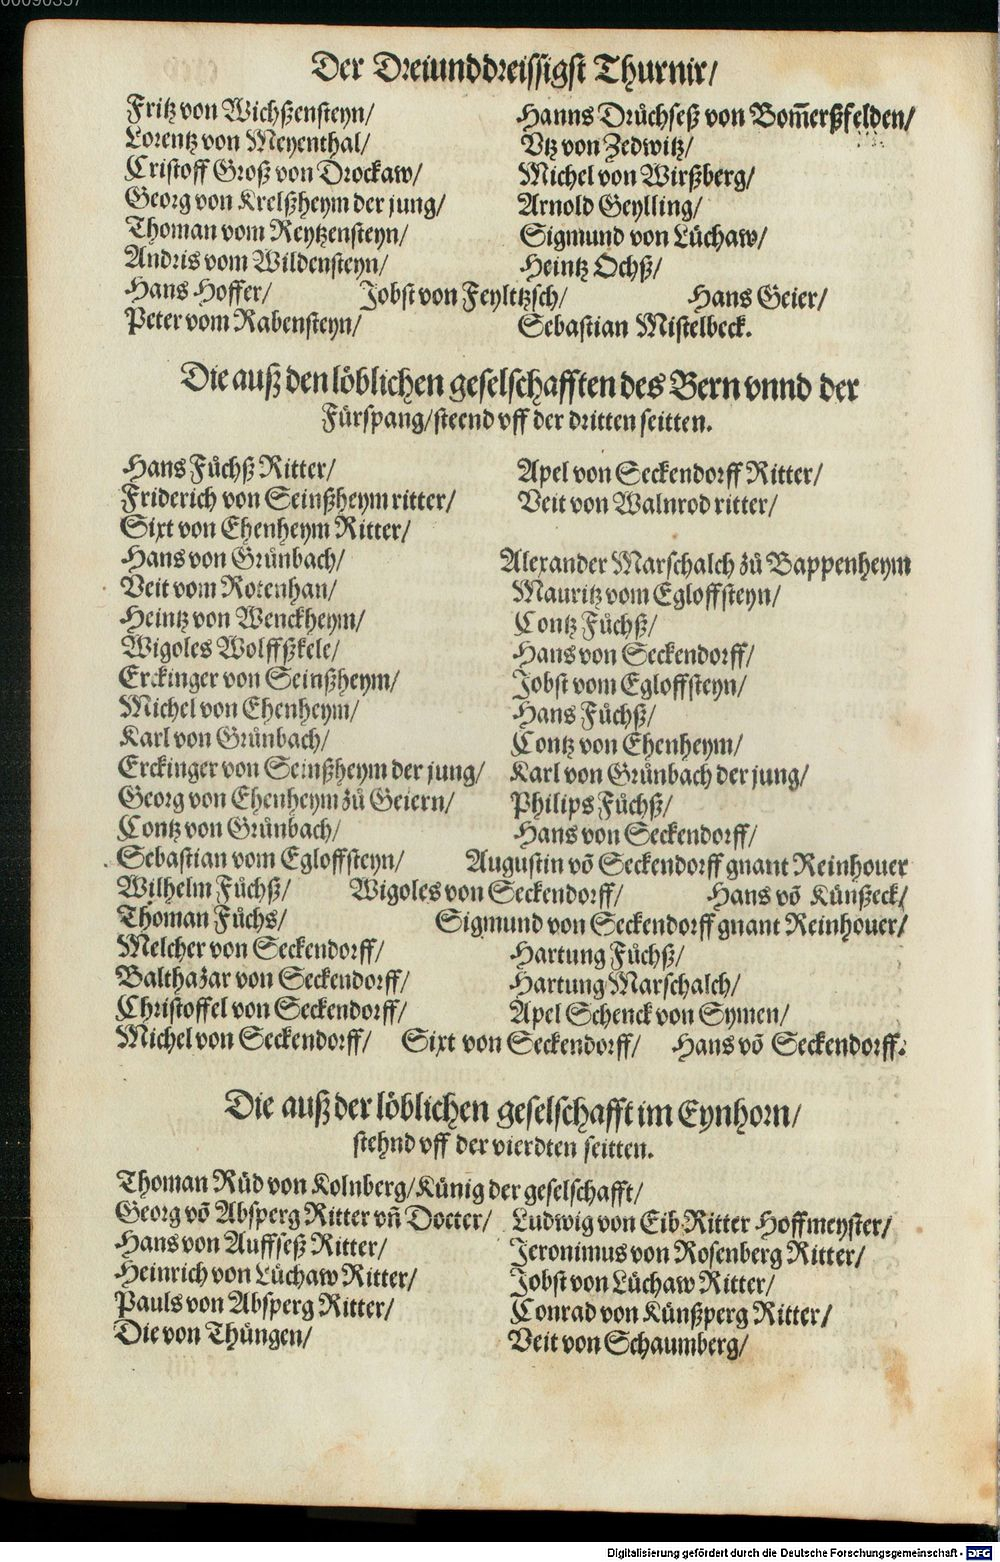 Der Dreiunddreissigst Thurnir/
Fritz von Wichßensteyn/ Hanns Drüchseß von Bom̃erßfelden/
Lorentz von Meyenthal/ Vtz von Zedwitz/
Cristoff Groß von Drockaw/ Michel von Wirßberg/
Georg von Krelßheym der jung/ Arnold Geylling/
Thoman vom Reytzensteyn/ Sigmund von Lüchaw/
Andris vom Wildensteyn/ Heintz Ochß/
Hans Hoffer/ Jobst von Feylitzsch/ Hans Geier/
Peter vom Rabensteyn/ Sebastian Mistelbeck.
Die auß den löblichen geselschafften des Bern vnnd der
Fürspang/ steend vff der dritten seitten.
Hans Füchß Ritter/ Apel von Seckendorff Ritter/
Friderich von Seinßheym ritter/ Veit von Walnrod ritter/
Sixt von Ehenheym Ritter/
Hans von Grünbach/ Alexander Marschalch zů Bappenheym
Veit vom Rotenhan/ Mauritz vom Egloffsteyn/
Heintz von Wenckheym/ Contz Füchß/
Wigoles Wolffßkele/ Hans von Seckendorff/
Erckinger von Seinßheym/ Jobst vom Egloffsteyn/
Michel von Ehenheym/ Hans Füchß/
Karl von Grünbach/ Contz von Ehenheym/
Erckinger von Seinßheym der jung/ Karl von Grünbach der jung/
Georg von Ehenheym zů Geiern/ Philips Füchß/
Contz von Grünbach/ Hans von Seckendorff/
Sebastian vom Egloffsteyn/ Augustin võ Seckendorff gnant Reinhouer
Wilhelm Füchß/ Wigoles von Seckendorff/ Hans võ Künßeck/
Thoman Füchs/ Sigmund von Seckendorff gnant Reinhouer/
Melcher von Seckendorff/ Hartung Füchß/
Balthazar von Seckendorff/ Hartung Marschalch/
Christoffel von Seckendorff/ Apel Schenck von Symen/
Michel von Seckendorff/ Sixt von Seckendorff/ Hans võ Seckendorff.
Die auß der löblichen geselschafft im Eynhorn/
stehnd vff der vierdten seitten.
Thoman Rüd von Kolnberg/ Künig der geselschafft/
Georg võ Absperg Ritter vñ Docter/ Ludwig von Eib Ritter Hoffmeyster/
Hans von Auffseß Ritter/ Jeronimus von Rosenberg Ritter/
Heinrich von Lüchaw Ritter/ Jobst von Lüchaw Ritter/
Pauls von Absperg Ritter/ Conrad von Künßperg Ritter/
Die von Thüngen/ Veit von Schaumberg/
Digitalisierung gefördert durch die Deutsche Forschungsgemeinschaft - DFG